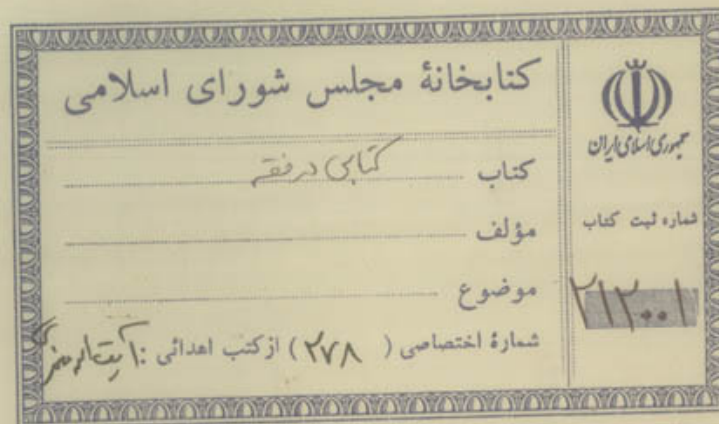 کتابخانهٔ مجلس شورای اسلامی
کتاب کتابی در فقه
مؤلف
موضوع
شمارهٔ اختصاصی ( ۲۷۸ ) از کتب اهدائی :
جمهوری اسلامی ایران
شماره ثبت کتاب
۲۱۲۰۰۱